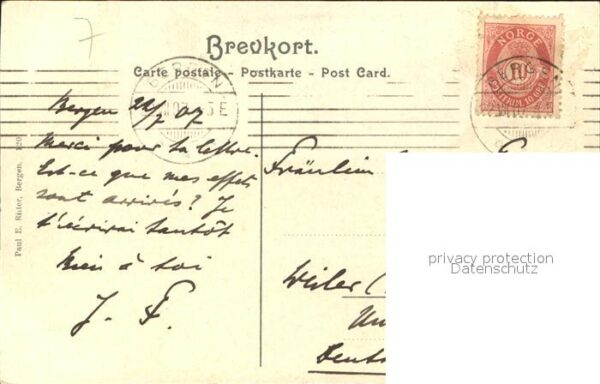 7
Brevkort.
Carte postale - Postkarte - Post Card.
NORGE
10
BERGEN
Bergen 22/7 07
Merci pour ta lettre.
Est-ce que mes effets
sont arrivés? Je
t'écrirai tantôt
Bien à toi
J. F.
Fräulein
Weiler (
Deuts
Paul E. Ritter, Bergen.
privacy protection
Datenschutz